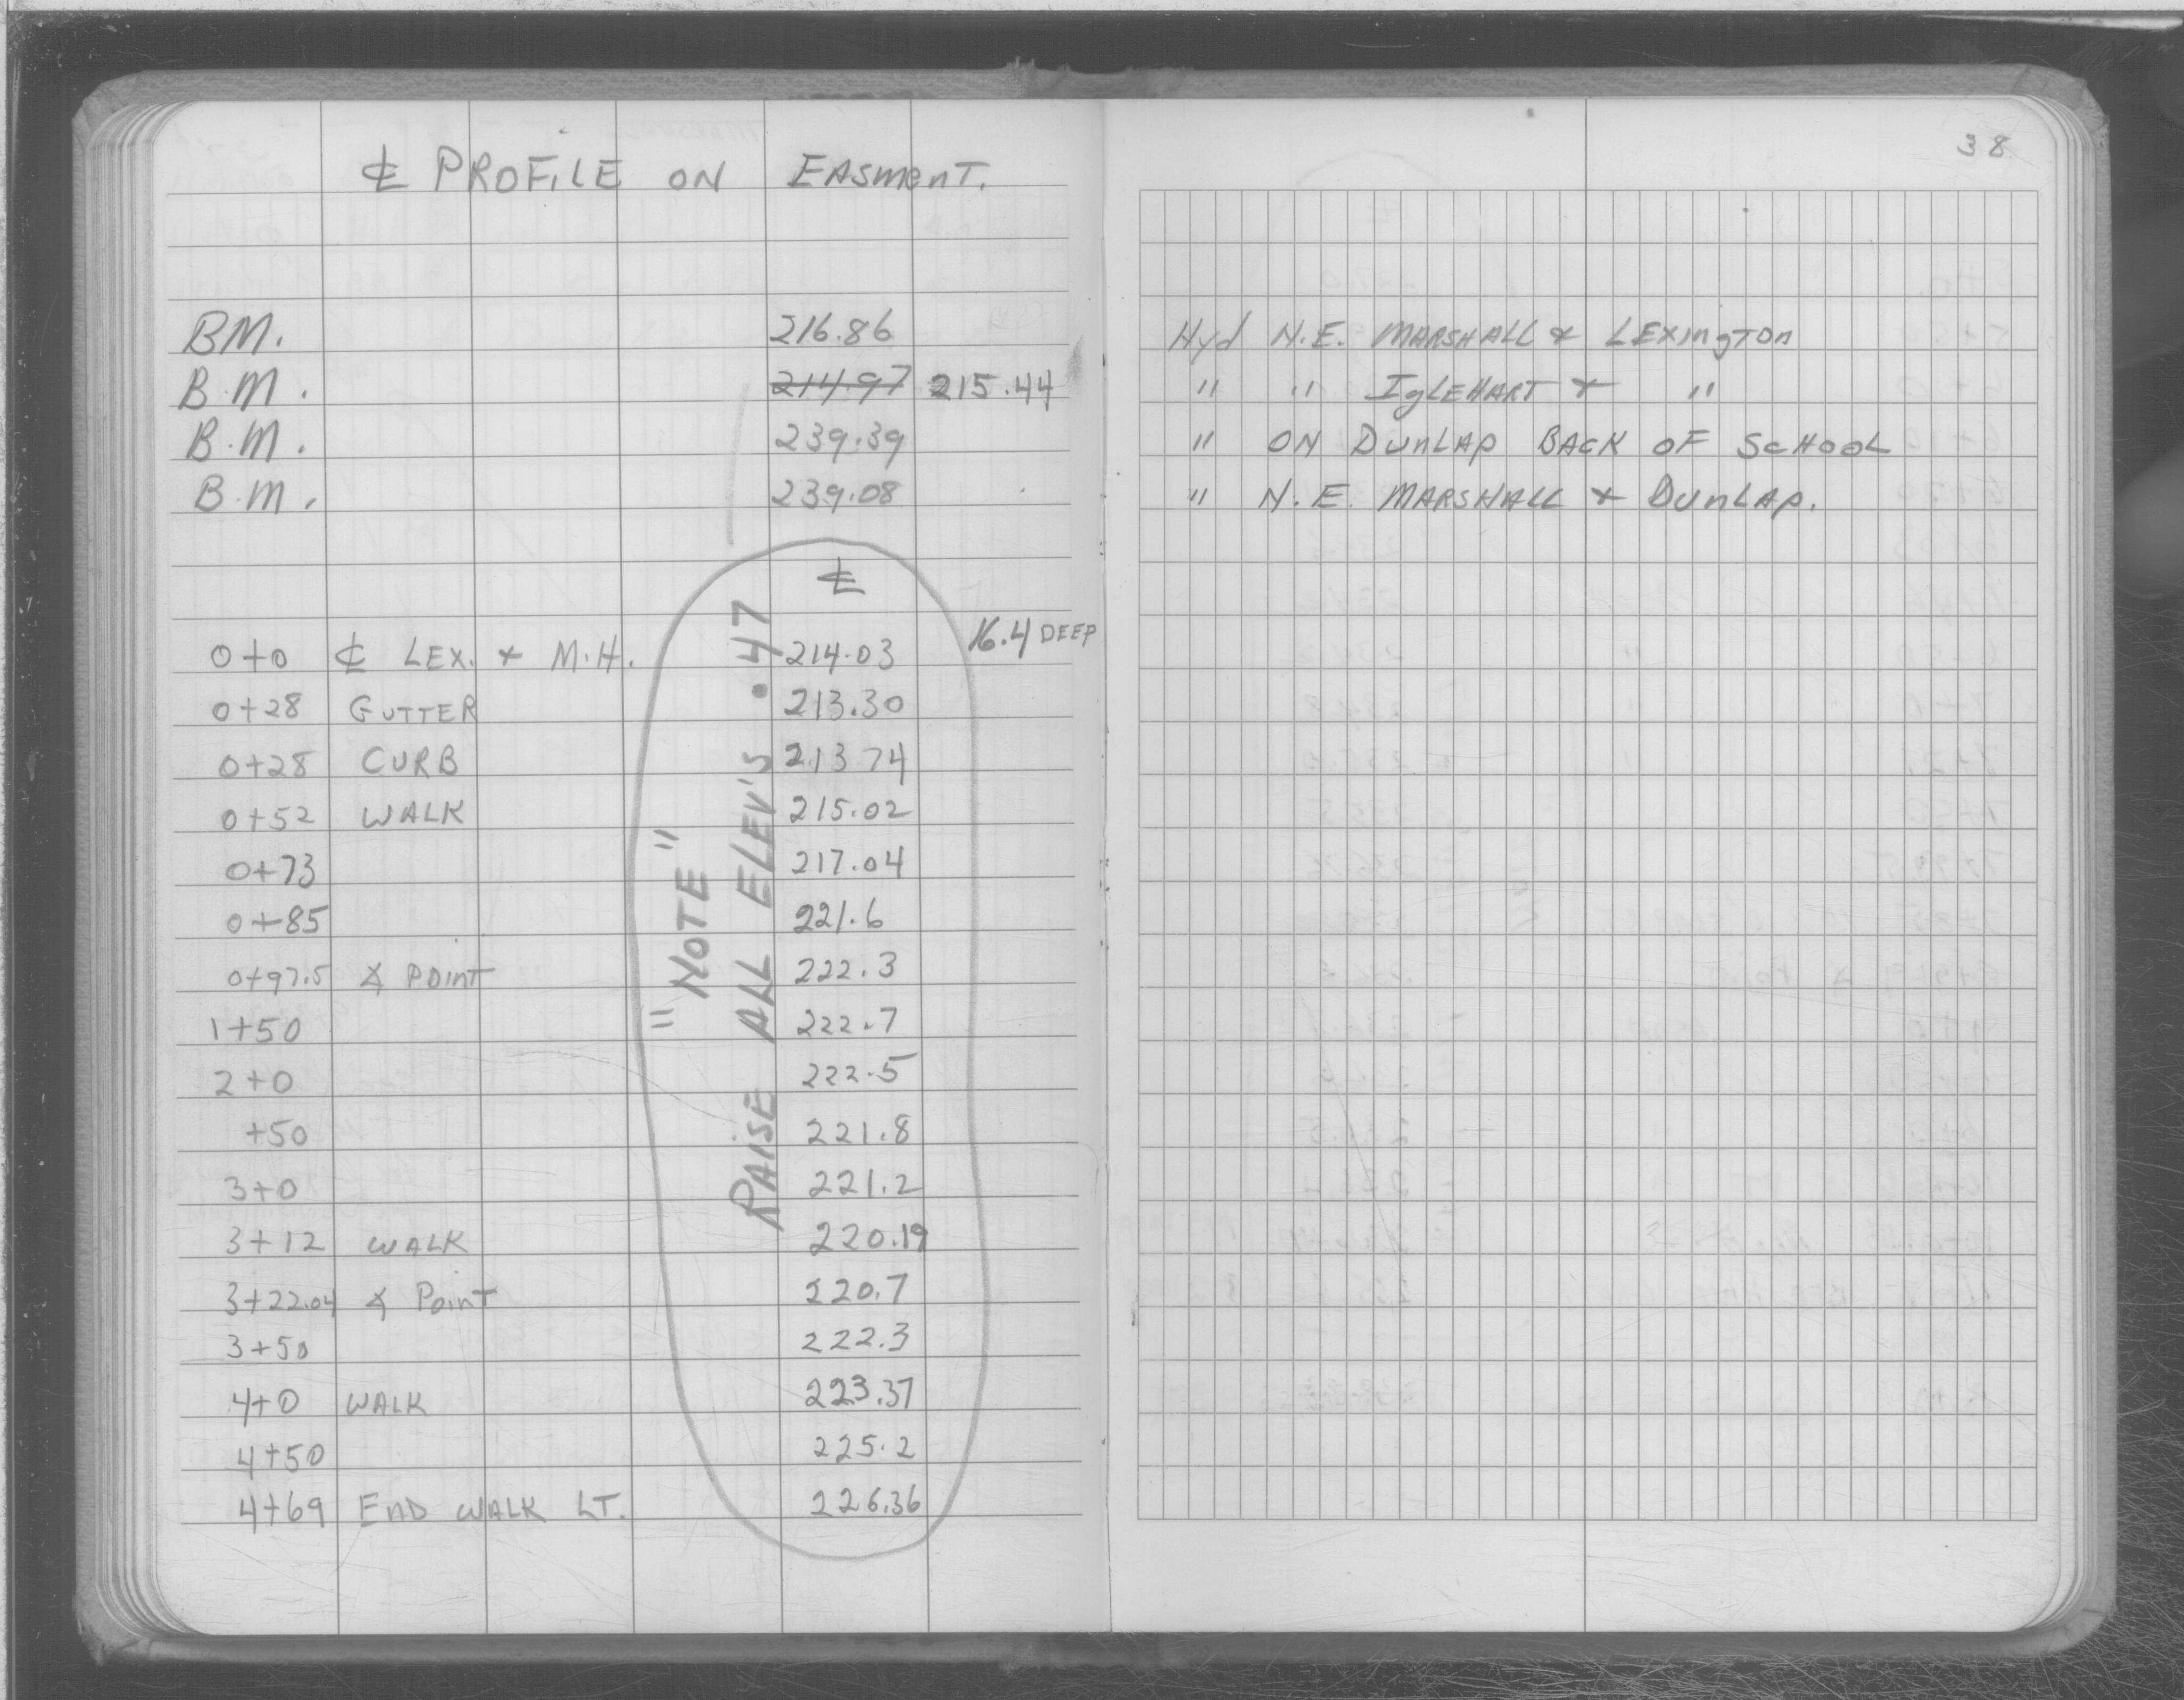 ℄ PROFILE ON EASMENT.
38
BM. 216.86 Hyd N.E. MARSHALL & LEXINGTON
B.M. 214.97 215.44 " " IGLEHART & "
B.M. 239.39 " ON DUNLAP BACK OF SCHOOL
B.M. 239.08 " N.E. MARSHALL & DUNLAP.
℄
0+0 ℄ LEX. & M.H. 214.03 16.4 DEEP
0+28 GUTTER 213.30
0+28 CURB 213 74
0+52 WALK 215.02
0+73 217.04
0+85 221.6
0+97.5 ∡ POINT 222.3
1+50 222.7
2+0 222.5
+50 221.8
3+0 221.2
3+12 WALK 220.19
3+22.04 ∡ POINT 220.7
3+50 222.3
4+0 WALK 223.37
4+50 225.2
4+69 END WALK LT. 226.36
"NOTE"
RAISE ALL ELEV'S .47